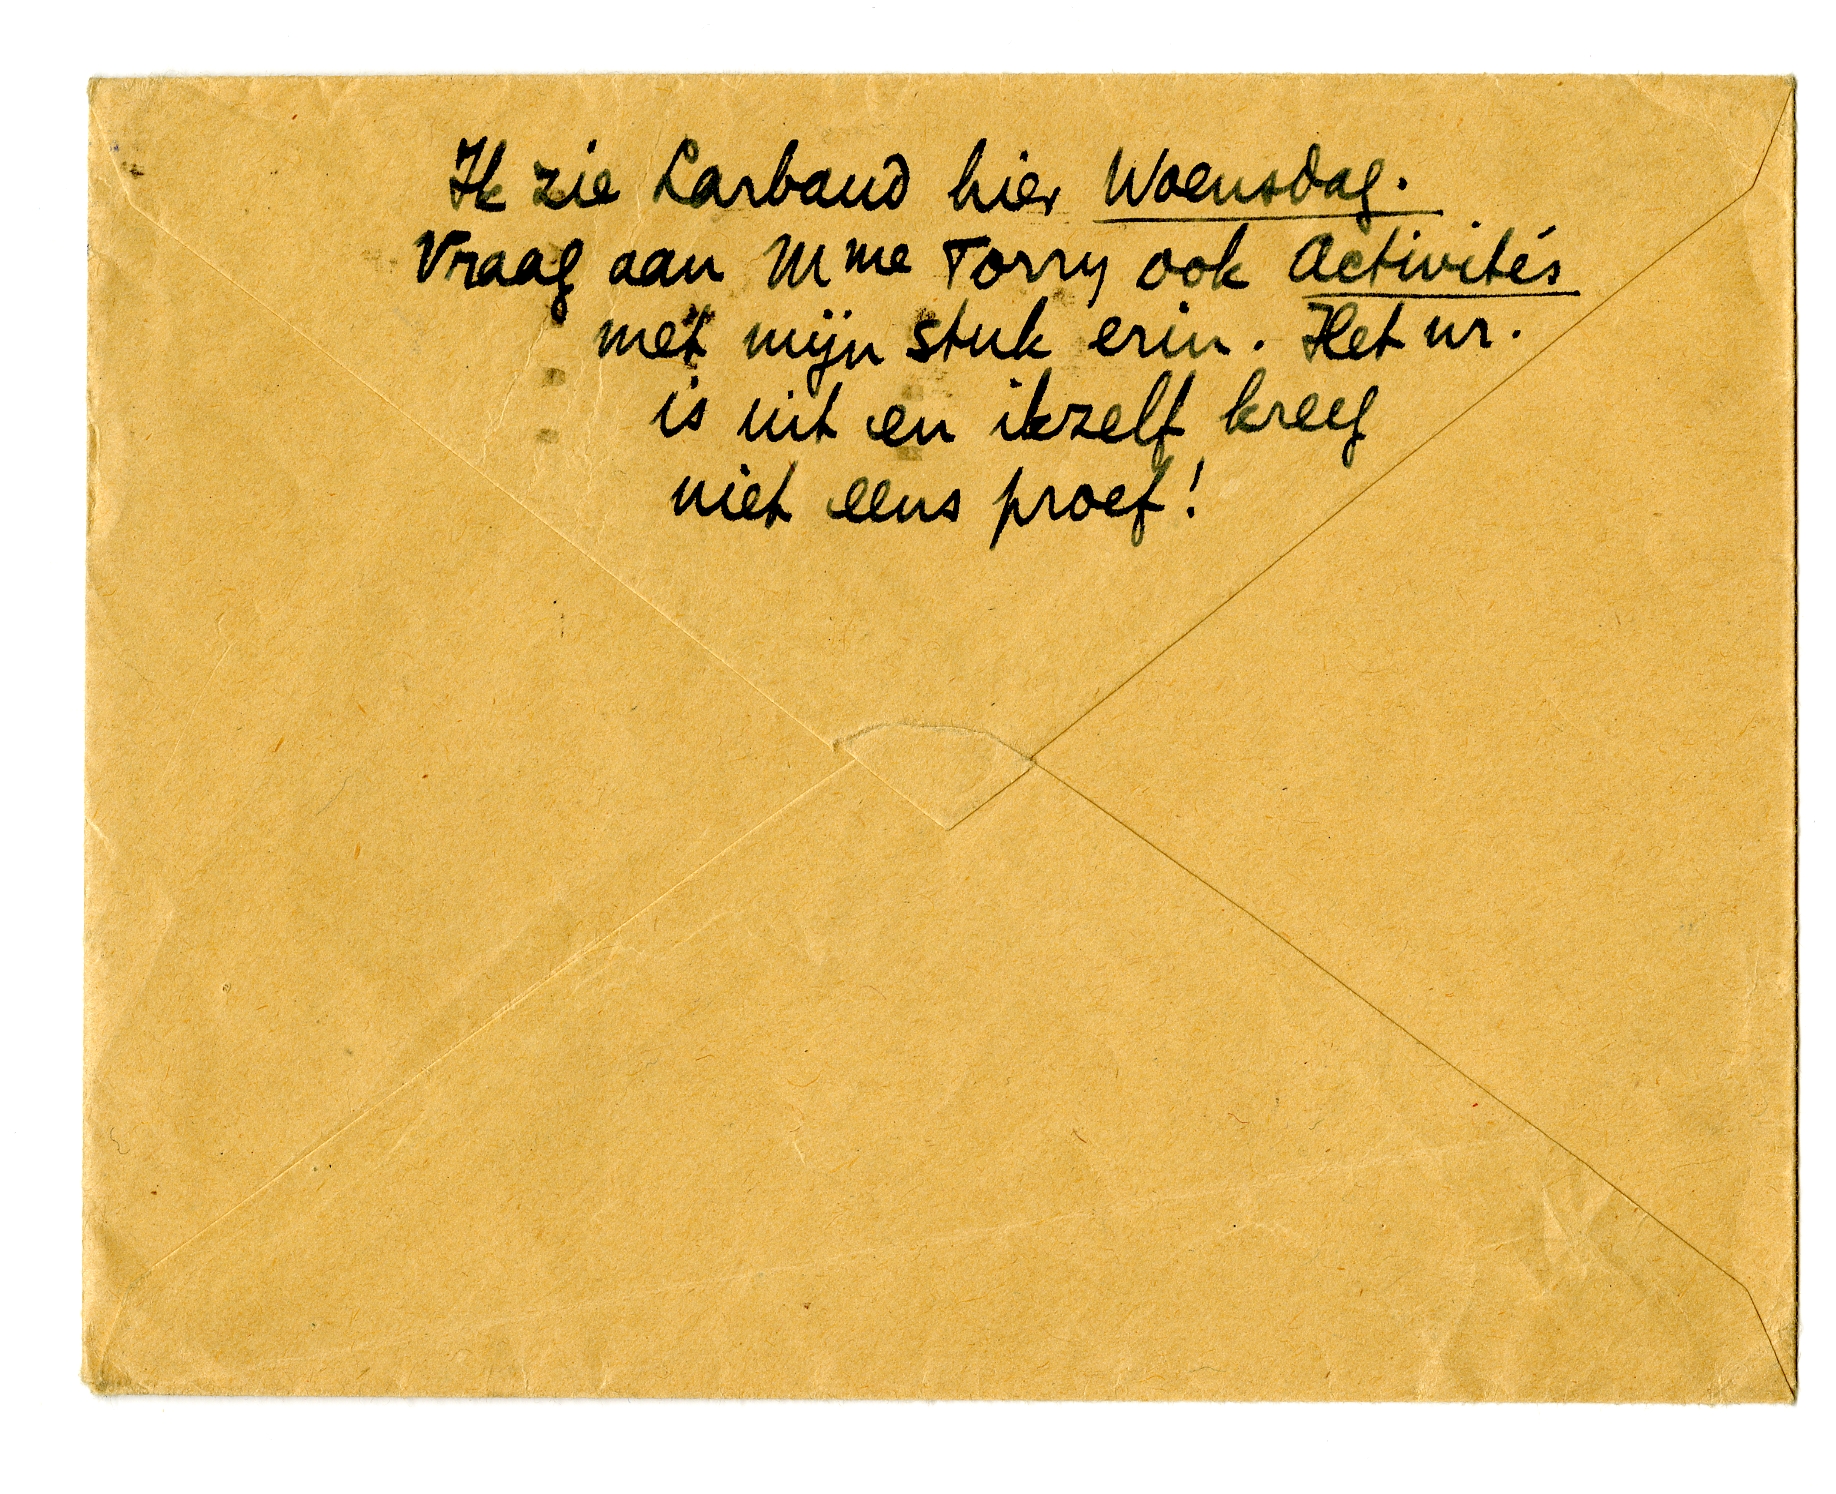 Ik zie Larbaud hier Woensdag.
Vraag aan Mme Torry ook Activités
met mijn stuk erin. Het nr.
is uit en ikzelf kreeg
niet eens proef!